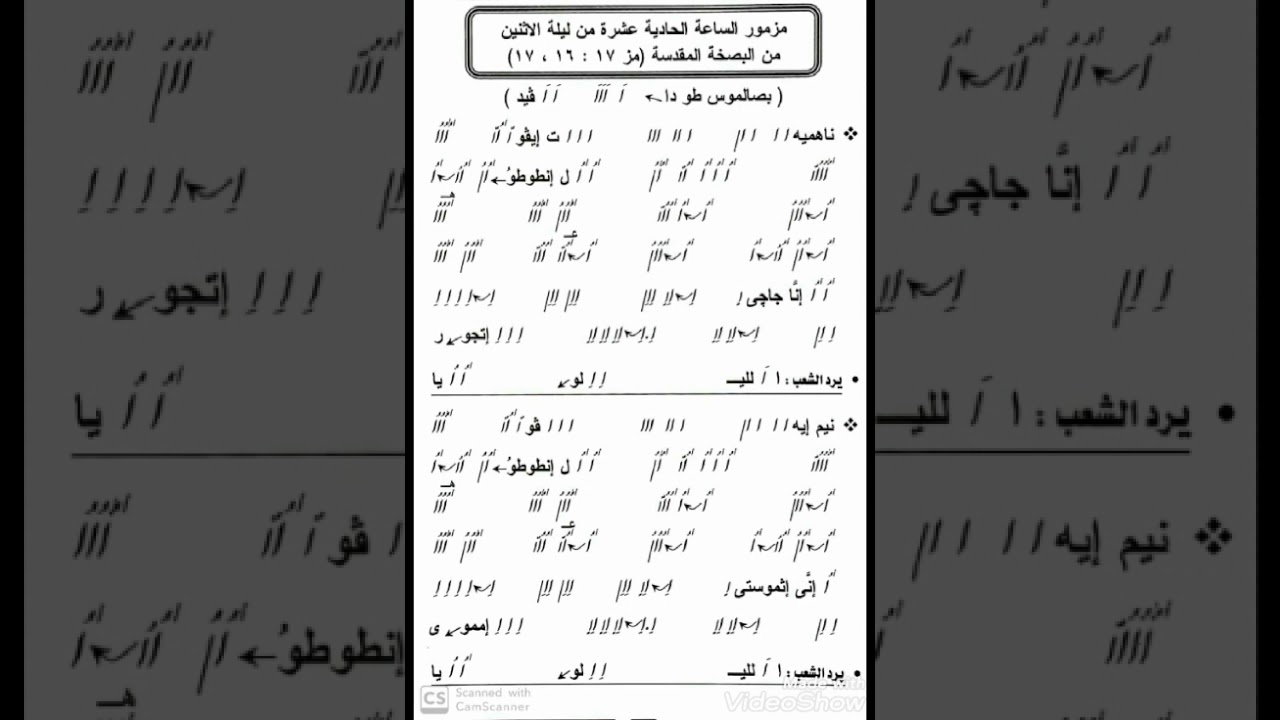 مزمور الساعة الحادية عشرة من ليلة الاثنين
من البصخة المقدسة (مز ١٧ : ١٦ ، ١٧)
( بصالموس طو دا فيد )
ناهميه ت إيڤو
ل إنطوطوُ
إنَّا جاچى
إتجو ر
• يرد الشعب : ا لليـ لو يا
نيم إيه ڤو
ل إنطوطوُ
إنَّى إثموستى
إممو ى
• يرد الشعب : ا لليـ لو يا
CS Scanned with
CamScanner
Made with
VideoShow